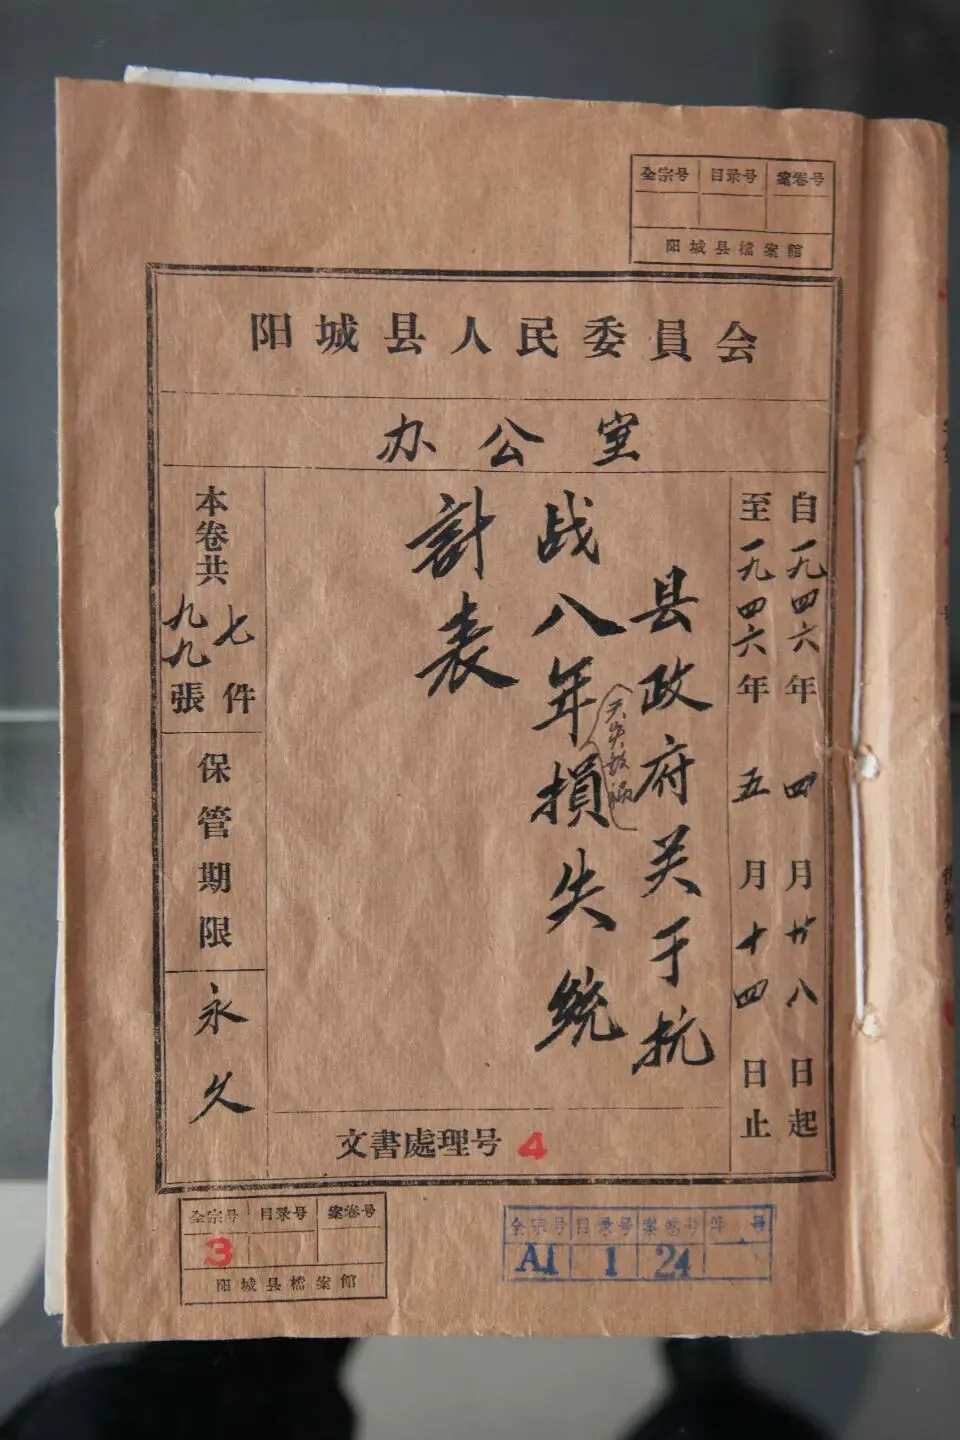 全宗号 目录号 案卷号
阳城县檔案館
阳城县人民委員会
办公室
自一九四六年四月廿八日起
至一九四六年五月十四日止
县政府关于抗
战八年損失統
計表
本卷共
七件
九九張
保管期限
永久
文書處理号 4
全宗号 目录号 案卷号
3
阳城县檔案館
全宗号 目录号 案卷号 件号
A1 1 24